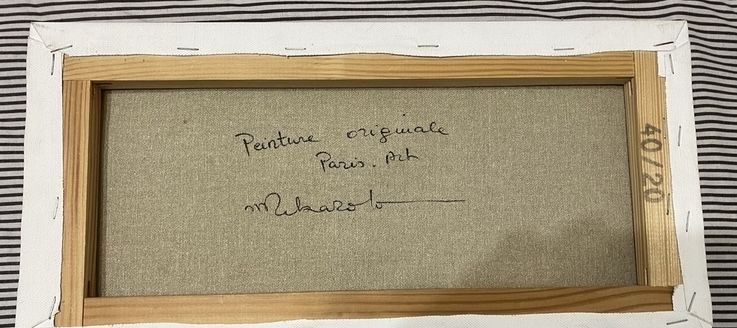 Peinture originale
Paris. Art
40/20